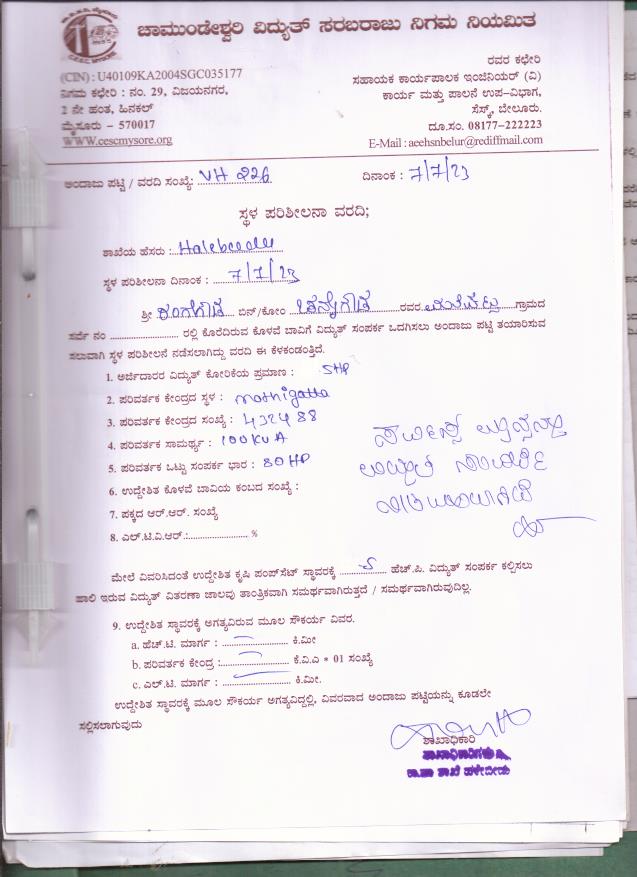 ಚಾಮುಂಡೇಶ್ವರಿ ವಿದ್ಯುತ್ ಸರಬರಾಜು ನಿಗಮ ನಿಯಮಿತ
C.E.S.C. MYSORE
(CIN) : U40109KA2004SGC035177
ನಿಗಮ ಕಛೇರಿ : ನಂ. 29, ವಿಜಯನಗರ,
2 ನೇ ಹಂತ, ಹಿನಕಲ್
ಮೈಸೂರು - 570017
WWW.cescmysore.org
ರವರ ಕಛೇರಿ
ಸಹಾಯಕ ಕಾರ್ಯಪಾಲಕ ಇಂಜಿನಿಯರ್ (ವಿ)
ಕಾರ್ಯ ಮತ್ತು ಪಾಲನೆ ಉಪ-ವಿಭಾಗ,
ಸೆಸ್ಕ್, ಬೇಲೂರು.
ದೂ.ಸಂ. 08177-222223
E-Mail : aeehsnbelur@rediffmail.com
ಅಂದಾಜು ಪಟ್ಟಿ / ವರದಿ ಸಂಖ್ಯೆ: VH 226 ದಿನಾಂಕ : 7/7/23
ಸ್ಥಳ ಪರಿಶೀಲನಾ ವರದಿ;
ಶಾಖೆಯ ಹೆಸರು : Halebeedu
ಸ್ಥಳ ಪರಿಶೀಲನಾ ದಿನಾಂಕ : 7/7/23
ಶ್ರೀ ರಂಗೇಗೌಡ ಬಿನ್/ಕೋಂ ಚನ್ನೇಗೌಡ ರವರ ಗ್ರಾಮದ
ಸರ್ವೆ ನಂ .................... ರಲ್ಲಿ ಕೊರೆದಿರುವ ಕೊಳವೆ ಬಾವಿಗೆ ವಿದ್ಯುತ್ ಸಂಪರ್ಕ ಒದಗಿಸಲು ಅಂದಾಜು ಪಟ್ಟಿ ತಯಾರಿಸುವ
ಸಲುವಾಗಿ ಸ್ಥಳ ಪರಿಶೀಲನೆ ನಡೆಸಲಾಗಿದ್ದು ವರದಿ ಈ ಕೆಳಕಂಡಂತ್ತಿದೆ.
1. ಅರ್ಜಿದಾರರ ವಿದ್ಯುತ್ ಕೋರಿಕೆಯ ಪ್ರಮಾಣ : 5HP
2. ಪರಿವರ್ತಕ ಕೇಂದ್ರದ ಸ್ಥಳ : mothigatta
3. ಪರಿವರ್ತಕ ಕೇಂದ್ರದ ಸಂಖ್ಯೆ : 432488
4. ಪರಿವರ್ತಕ ಸಾಮರ್ಥ್ಯ : 100KVA
5. ಪರಿವರ್ತಕ ಒಟ್ಟು ಸಂಪರ್ಕ ಭಾರ : 80HP
6. ಉದ್ದೇಶಿತ ಕೊಳವೆ ಬಾವಿಯ ಕಂಬದ ಸಂಖ್ಯೆ :
7. ಪಕ್ಕದ ಆರ್.ಆರ್. ಸಂಖ್ಯೆ
8. ಎಲ್.ಟಿ.ವಿ.ಆರ್.:.................... %
ಮೇಲೆ ವಿವರಿಸಿದಂತೆ ಉದ್ದೇಶಿತ ಕೃಷಿ ಪಂಪ್‌ಸೆಟ್ ಸ್ಥಾವರಕ್ಕೆ 5 ಹೆಚ್.ಪಿ. ವಿದ್ಯುತ್ ಸಂಪರ್ಕ ಕಲ್ಪಿಸಲು
ಹಾಲಿ ಇರುವ ವಿದ್ಯುತ್ ವಿತರಣಾ ಜಾಲವು ತಾಂತ್ರಿಕವಾಗಿ ಸಮರ್ಥವಾಗಿರುತ್ತದೆ / ಸಮರ್ಥವಾಗಿರುವುದಿಲ್ಲ.
9. ಉದ್ದೇಶಿತ ಸ್ಥಾವರಕ್ಕೆ ಅಗತ್ಯವಿರುವ ಮೂಲ ಸೌಕರ್ಯ ವಿವರ.
a. ಹೆಚ್.ಟಿ. ಮಾರ್ಗ : .................... ಕಿ.ಮೀ
b. ಪರಿವರ್ತಕ ಕೇಂದ್ರ :.................... ಕೆ.ವಿ.ಎ * 01 ಸಂಖ್ಯೆ
c. ಎಲ್.ಟಿ. ಮಾರ್ಗ : .................... ಕಿ.ಮೀ.
ಉದ್ದೇಶಿತ ಸ್ಥಾವರಕ್ಕೆ ಮೂಲ ಸೌಕರ್ಯ ಅಗತ್ಯವಿದ್ದಲ್ಲಿ, ವಿವರವಾದ ಅಂದಾಜು ಪಟ್ಟಿಯನ್ನು ಕೂಡಲೇ
ಸಲ್ಲಿಸಲಾಗುವುದು
ಶಾಖಾಧಿಕಾರಿ
ಶಾಖಾಧಿಕಾರಿಗಳು
ಕಾ.ಪಾ ಶಾಖೆ ಹಳೇಬೀಡು